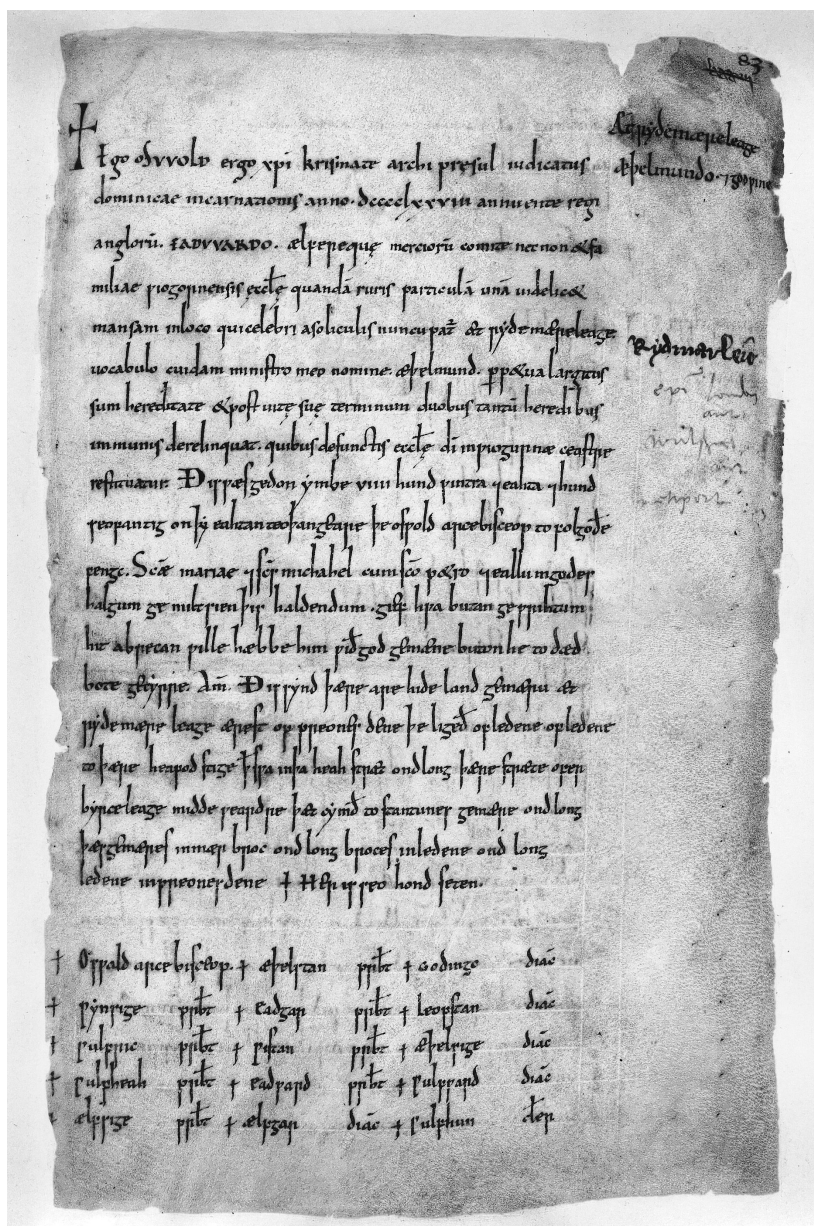 83
Æt ryde mære leage
æþelmundo ⁊ godƿine
✝ Ego osvvold ergo xp̄i krismate archi presul iudicatus
dominicae incarnationis anno. dcccclxxviii annuente regi
anglorū. EADVVARDO. ælfereque̜ merciorū comite necnon & fa
miliae ƿiogornensis e̜ccłe̜ quandā ruris particulā unā uidelic&
mansam inloco qui celebri asoliculis nuncupat̄ Æt rydemæreleage
uocabulo cuidam ministro meo nomine. æþelmund. p̱p&ua largitus
sum hereditate & post uite̜ sue̜ terminum duobus tantū heredibus
immunis derelinquat. quibus defunctis e̜ccłe̜ dī inƿiogurna ceastre
restituatur. Ðis ƿæs gedon ymbe viiii hund ƿintra ⁊ eahta ⁊ hund
seofantig on þy eahtanteoþan geare þe osƿold arcebisceop to folgoðe
fengc. Scāe mariae ⁊ sc̄s michahel cum sc̄o p&ro ⁊ eallum godes
halgum ge miltsien þis haldendum. gief hƿa butan geƿrihtum
hit abrecan ƿille hæbbe him ƿið god gemæne buton he to dæd
bote gecyrre. Am̄. Ðis synd þære are hide land gemæru æt
ryde mære leage ærest of ƿreones dene þe ligeð of ledene. of ledene
to þære heafod stige ꝥ sƿa insƿa heah stræt ondlong þære stræte ofer
byrce leage midde ƿeardre þæt cymð to stantunes gemære ondlong
þæs gemæres in mær broc ondlong broces inledene ond long
ledene inƿreonesdene ✝ Her is seo hond seten.
Rydmarleie
✝ Osƿald arcebisceop. ✝ æþelstan p̄sbt ✝ Godingc diāc
✝ ƿynsige p̄sbt ✝ Eadgar p̄sbt ✝ Leofstan diāc
✝ ƿulfric p̄sbt ✝ ƿistan p̄sbt ✝ Æþelsige diāc
✝ ƿulfheah p̄sbt ✝ Eadƿard p̄sbt ✝ ƿulfƿard diāc
✝ ælfsige p̄sbt ✝ ælfgar diāc ✝ ƿulfhun cler